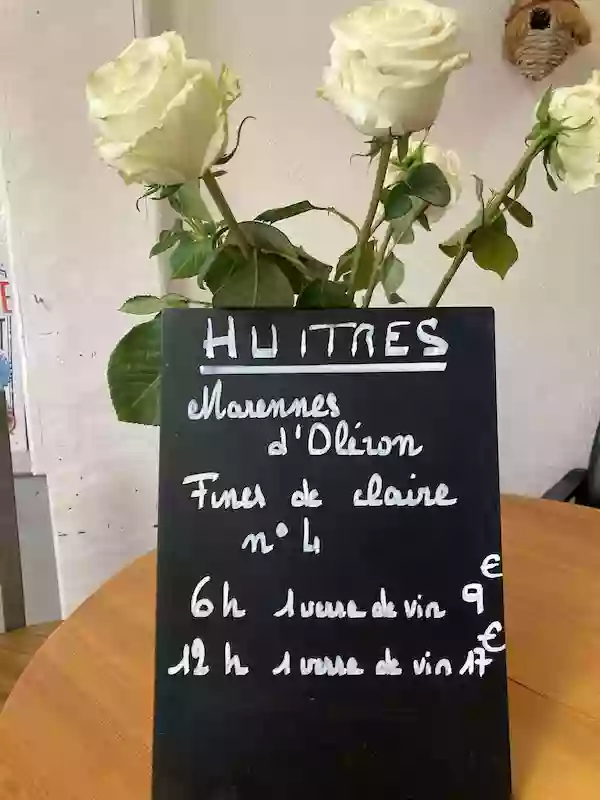 HUITRES
Marennes
d'Oléron
Fines de claire
n° 4
6h 1 verre de vin 9€
12 h 1 verre de vin 17€